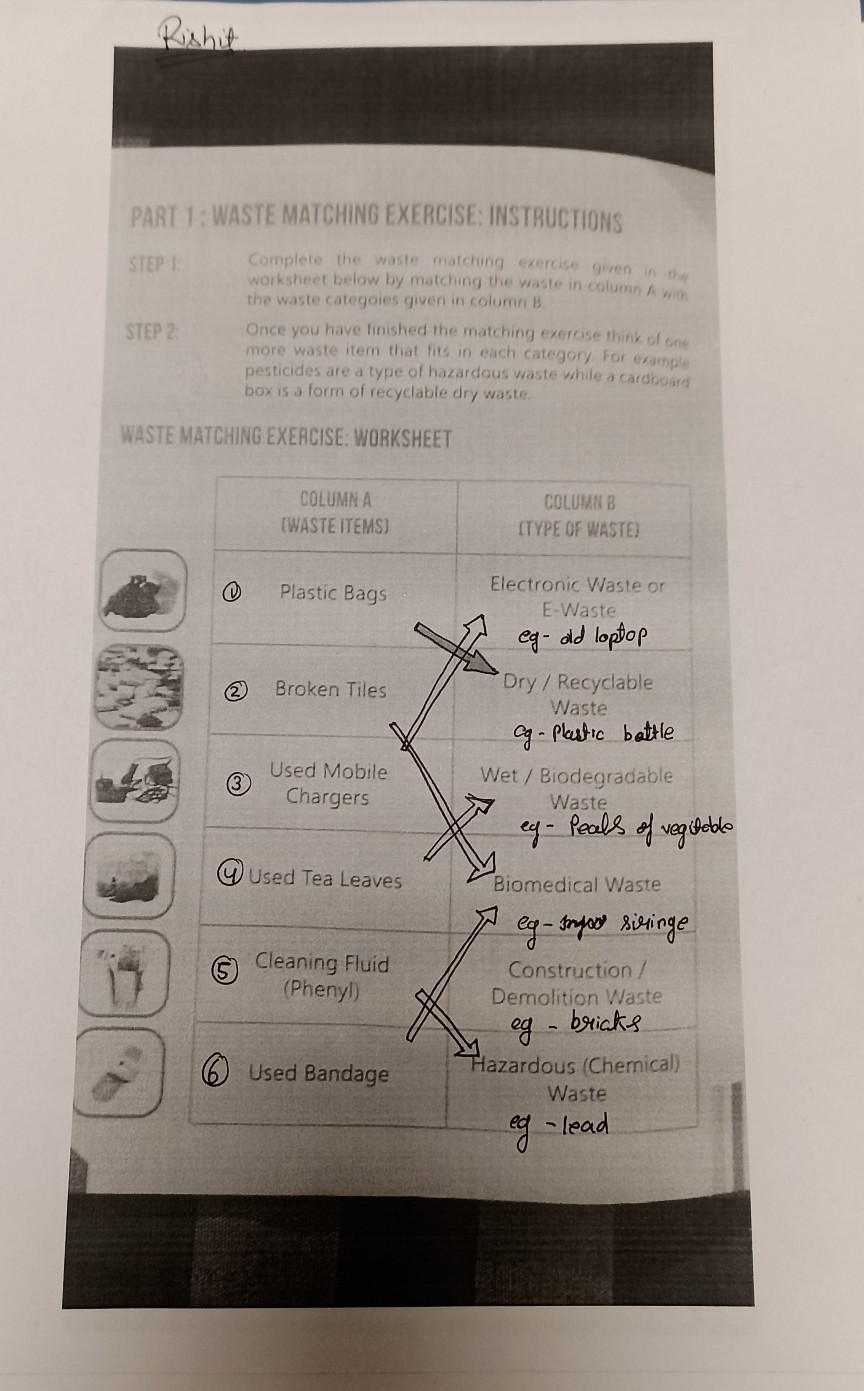 Rishit
PART 1 : WASTE MATCHING EXERCISE: INSTRUCTIONS
STEP 1: Complete the waste matching exercise given in the
worksheet below by matching the waste in column A with
the waste categoies given in column B.
STEP 2: Once you have finished the matching exercise think of one
more waste item that fits in each category. For example
pesticides are a type of hazardous waste while a cardboard
box is a form of recyclable dry waste.
WASTE MATCHING EXERCISE: WORKSHEET
COLUMN A
(WASTE ITEMS)
COLUMN B
(TYPE OF WASTE)
① Plastic Bags
Electronic Waste or
E-Waste
eg - old laptop
② Broken Tiles
Dry / Recyclable
Waste
eg - Plastic bottle
③ Used Mobile
Chargers
Wet / Biodegradable
Waste
eg - Peals of vegitable
④ Used Tea Leaves
Biomedical Waste
eg - siringe
⑤ Cleaning Fluid
(Phenyl)
Construction /
Demolition Waste
eg - bricks
⑥ Used Bandage
Hazardous (Chemical)
Waste
eg - lead